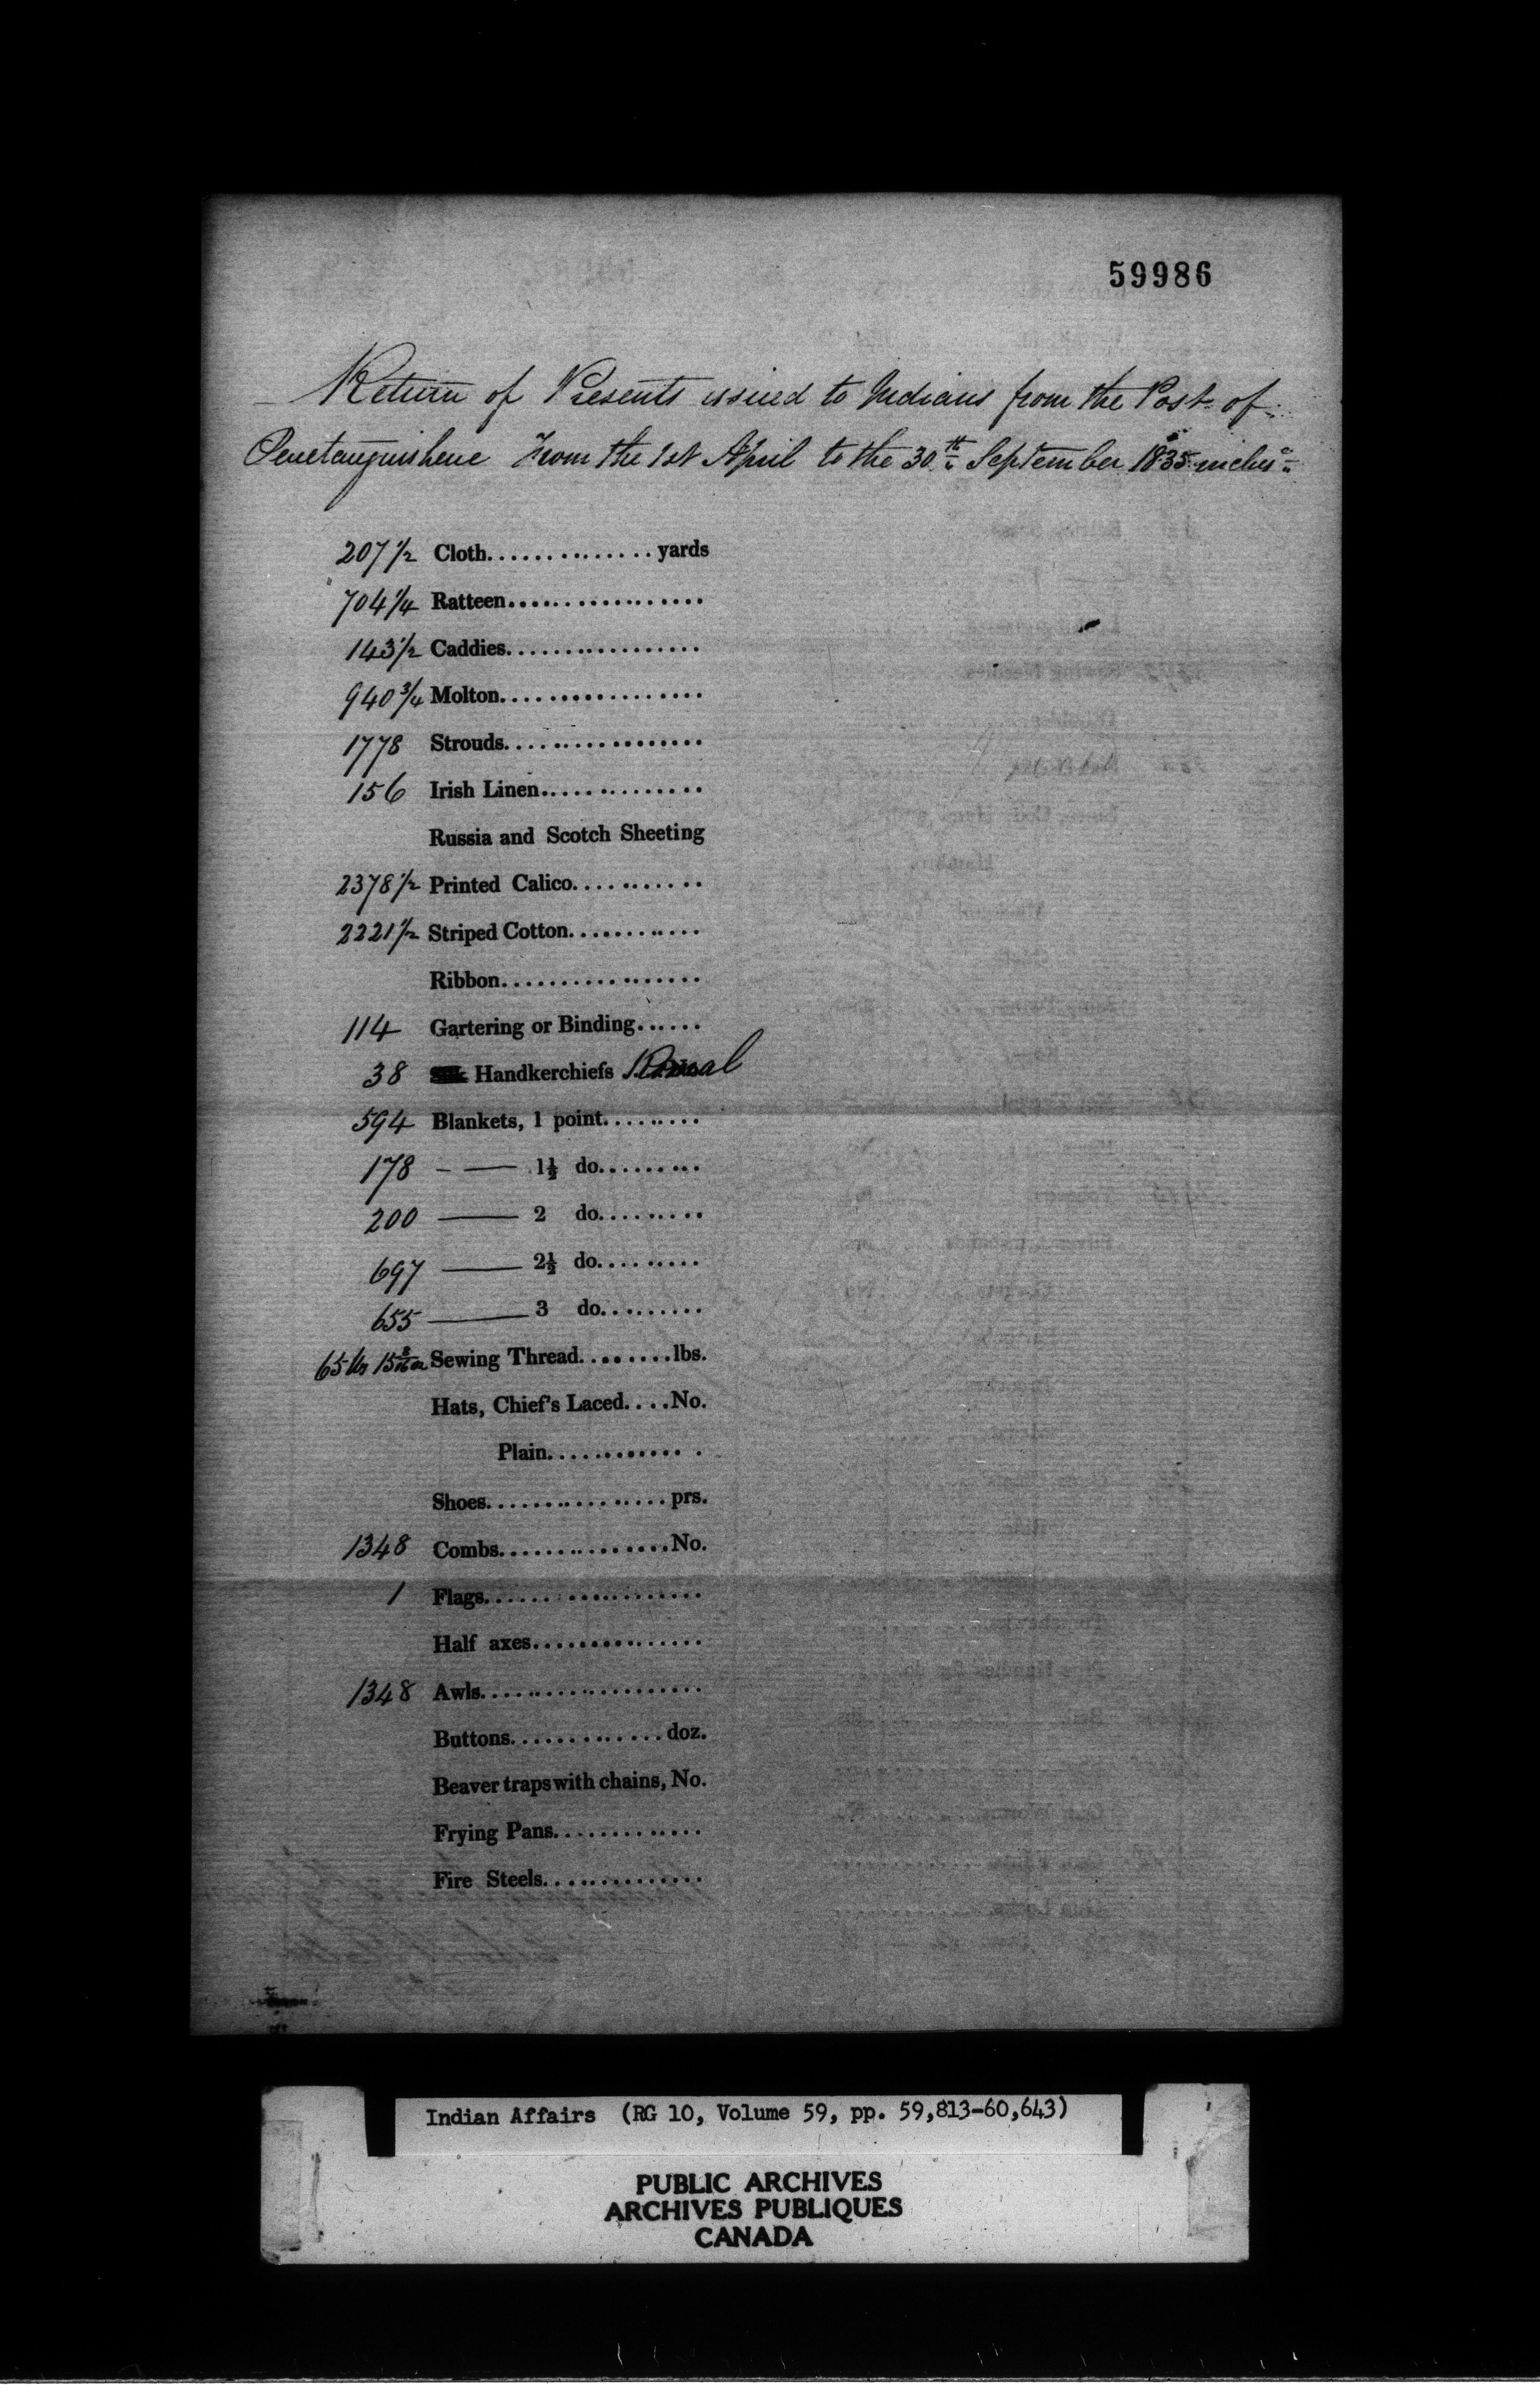 59986
Return of Presents issued to Indians from the Post of
Penetanguishene From the 1st April to the 30th September 1835 inclus:
207 1/2 Cloth.............. yards
704 1/4 Ratteen.................
143 1/2 Caddies.................
940 3/4 Molton.................
1778 Strouds.................
156 Irish Linen..............
Russia and Scotch Sheeting
2378 1/2 Printed Calico...........
2221 1/2 Striped Cotton...........
Ribbon.................
114 Gartering or Binding......
38 Handkerchiefs Romal
594 Blankets, 1 point.........
178 - — 1½ do.........
200 — 2 do.........
697 — 2½ do.........
655 — 3 do.........
65 lbs 15 Sewing Thread........lbs.
Hats, Chief's Laced....No.
Plain............. .
Shoes...............prs.
1348 Combs...............No.
1 Flags...................
Half axes...............
1348 Awls....................
Buttons.............doz.
Beaver traps with chains, No.
Frying Pans.............
Fire Steels..............
Indian Affairs (RG 10, Volume 59, pp. 59,813-60,643)
PUBLIC ARCHIVES
ARCHIVES PUBLIQUES
CANADA